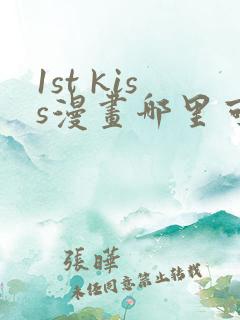 1st kis
s漫畫哪里可
張曄
未经同意禁止转载